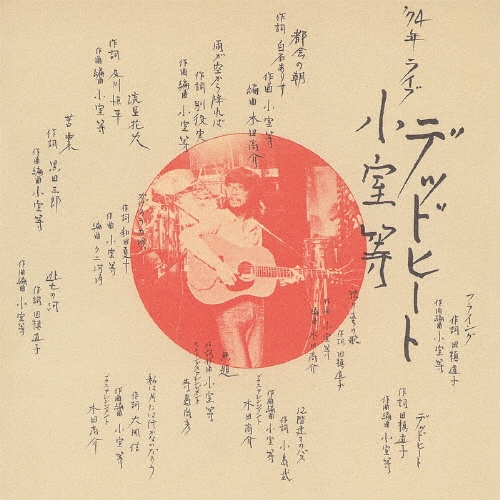 '74年 ライブ
デッドヒート
小室等
都会の朝
作詞 白石ありす
作曲 小室等
編曲 木田高介
雨が空から降れば
作詞 別役実
作曲編曲 小室等
流星花火
作詞 及川恒平
作曲編曲 小室等
苦業
作詞 黒田三郎
作曲編曲 小室等
フライング
作詞 田槇道子
作曲編曲 小室等
デッドヒート
作詞 田槇道子
作曲編曲 小室等
作詞 田槇道子
作曲 小室等
編曲 木田高介
12階建てのバス
作詞 小島武
作曲編曲 小室等
ブラスアレンジメント
木田高介
無題
作詞作曲
小室等
作詞 和田夏十
作曲 小室等
編曲 クニ河内
逃亡の河
作詞 田槇道子
作曲編曲 小室等
私は月には行かないだろう
作詞 大岡信
作曲編曲 小室等
ブラスアレンジメント
木田高介